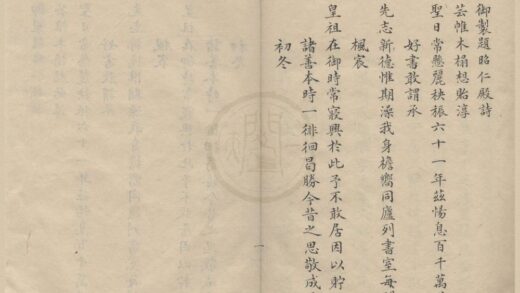 御製題昭仁殿詩
芸帷木榻想貽淳
聖日常懸麗袂振六十一年茲惕息百千萬
好書敢謂承
先志新德惟期澡我身檐嚮同廬列書室每
楓宸
皇祖在御時常寢興於此予不敢居因以貯
諸善本時一徘徊曷勝今昔之思敬成
初冬
一